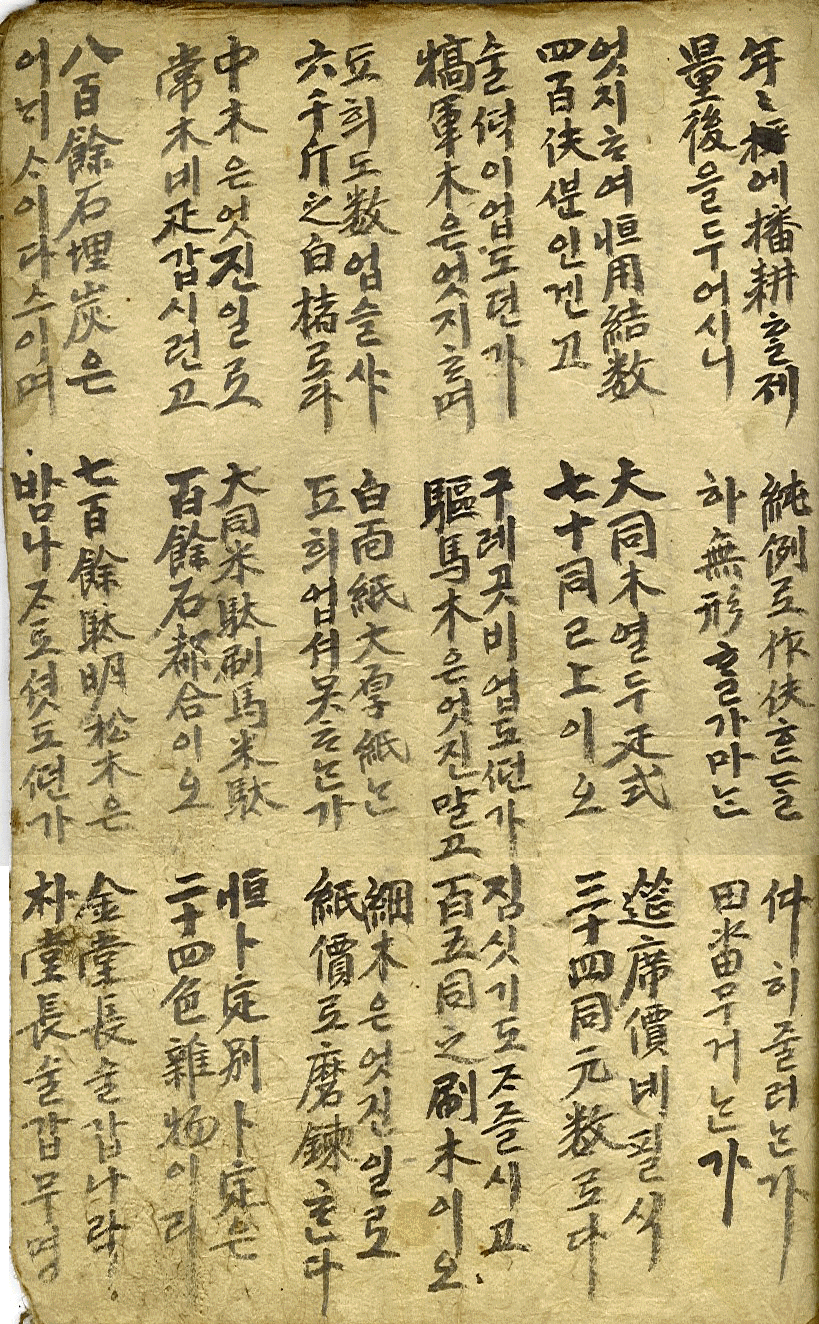 年〻에 播耕ᄒᆞᆯ제
量後을 두어시니
純例로 作伕흔들
하 無形ᄒᆞᆯ가마는
히 줄러는가
田畓 무거는가
엇지ᄒᆞ여 恒用結数
四百伕분인겐고
大同木 열두疋式
七十同已上이오
筵席價 네필식
三十四同元数로다
술녁이 업도던가
犒軍木은 엇지ᄒᆞ며
구레곳비 업도던가
驅馬木은 엇진말고
짐싯기도 ᄌᆞ즐시고
百五同之刷木이오
도희도数 업슬샤
六千斤之白楮로라
白面紙大厚紙는
도희업셔 못ᄒᆞ는가
細木은 엇진일로
紙價로 磨鍊ᄒᆞᆫ다
中木은 엇진일로
常木네疋갑시런고
大同米駄刷馬米駄
百餘石都合이오
恒卜定別卜定은
二十四色雜物이라
八百餘石埋炭은
어늬ᄉᆞ이다스이며
七百餘駄明松木은
밤나ᄌᆞ로 혓도던가
金堂長술갑나락
朴堂長술갑무명